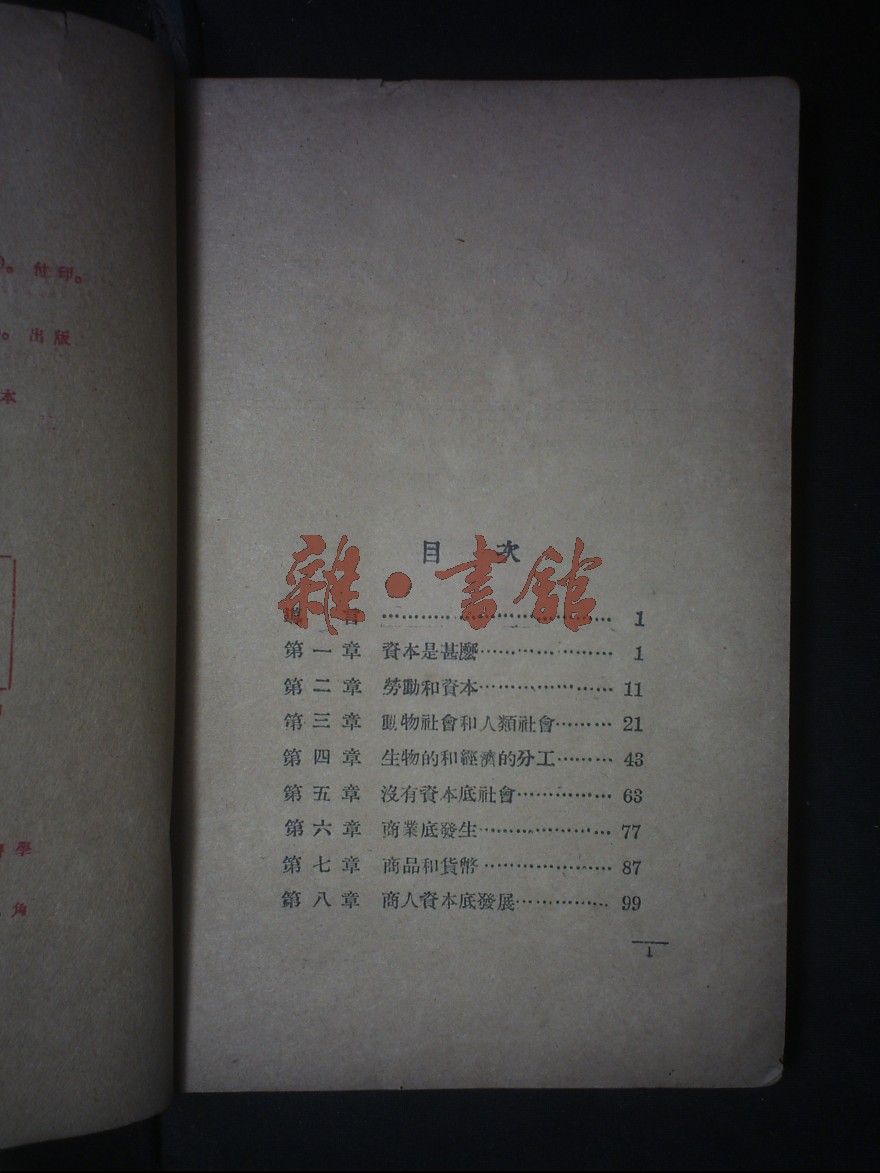 。付印。
。出版
本
學
角
目 次
雜·書館
………………………………… 1
第一章 資本是甚麼………………… 1
第二章 勞動和資本………………… 11
第三章 動物社會和人類社會……… 21
第四章 生物的和經濟的分工……… 43
第五章 沒有資本底社會…………… 63
第六章 商業底發生………………… 77
第七章 商品和貨幣………………… 87
第八章 商人資本底發展…………… 99
1